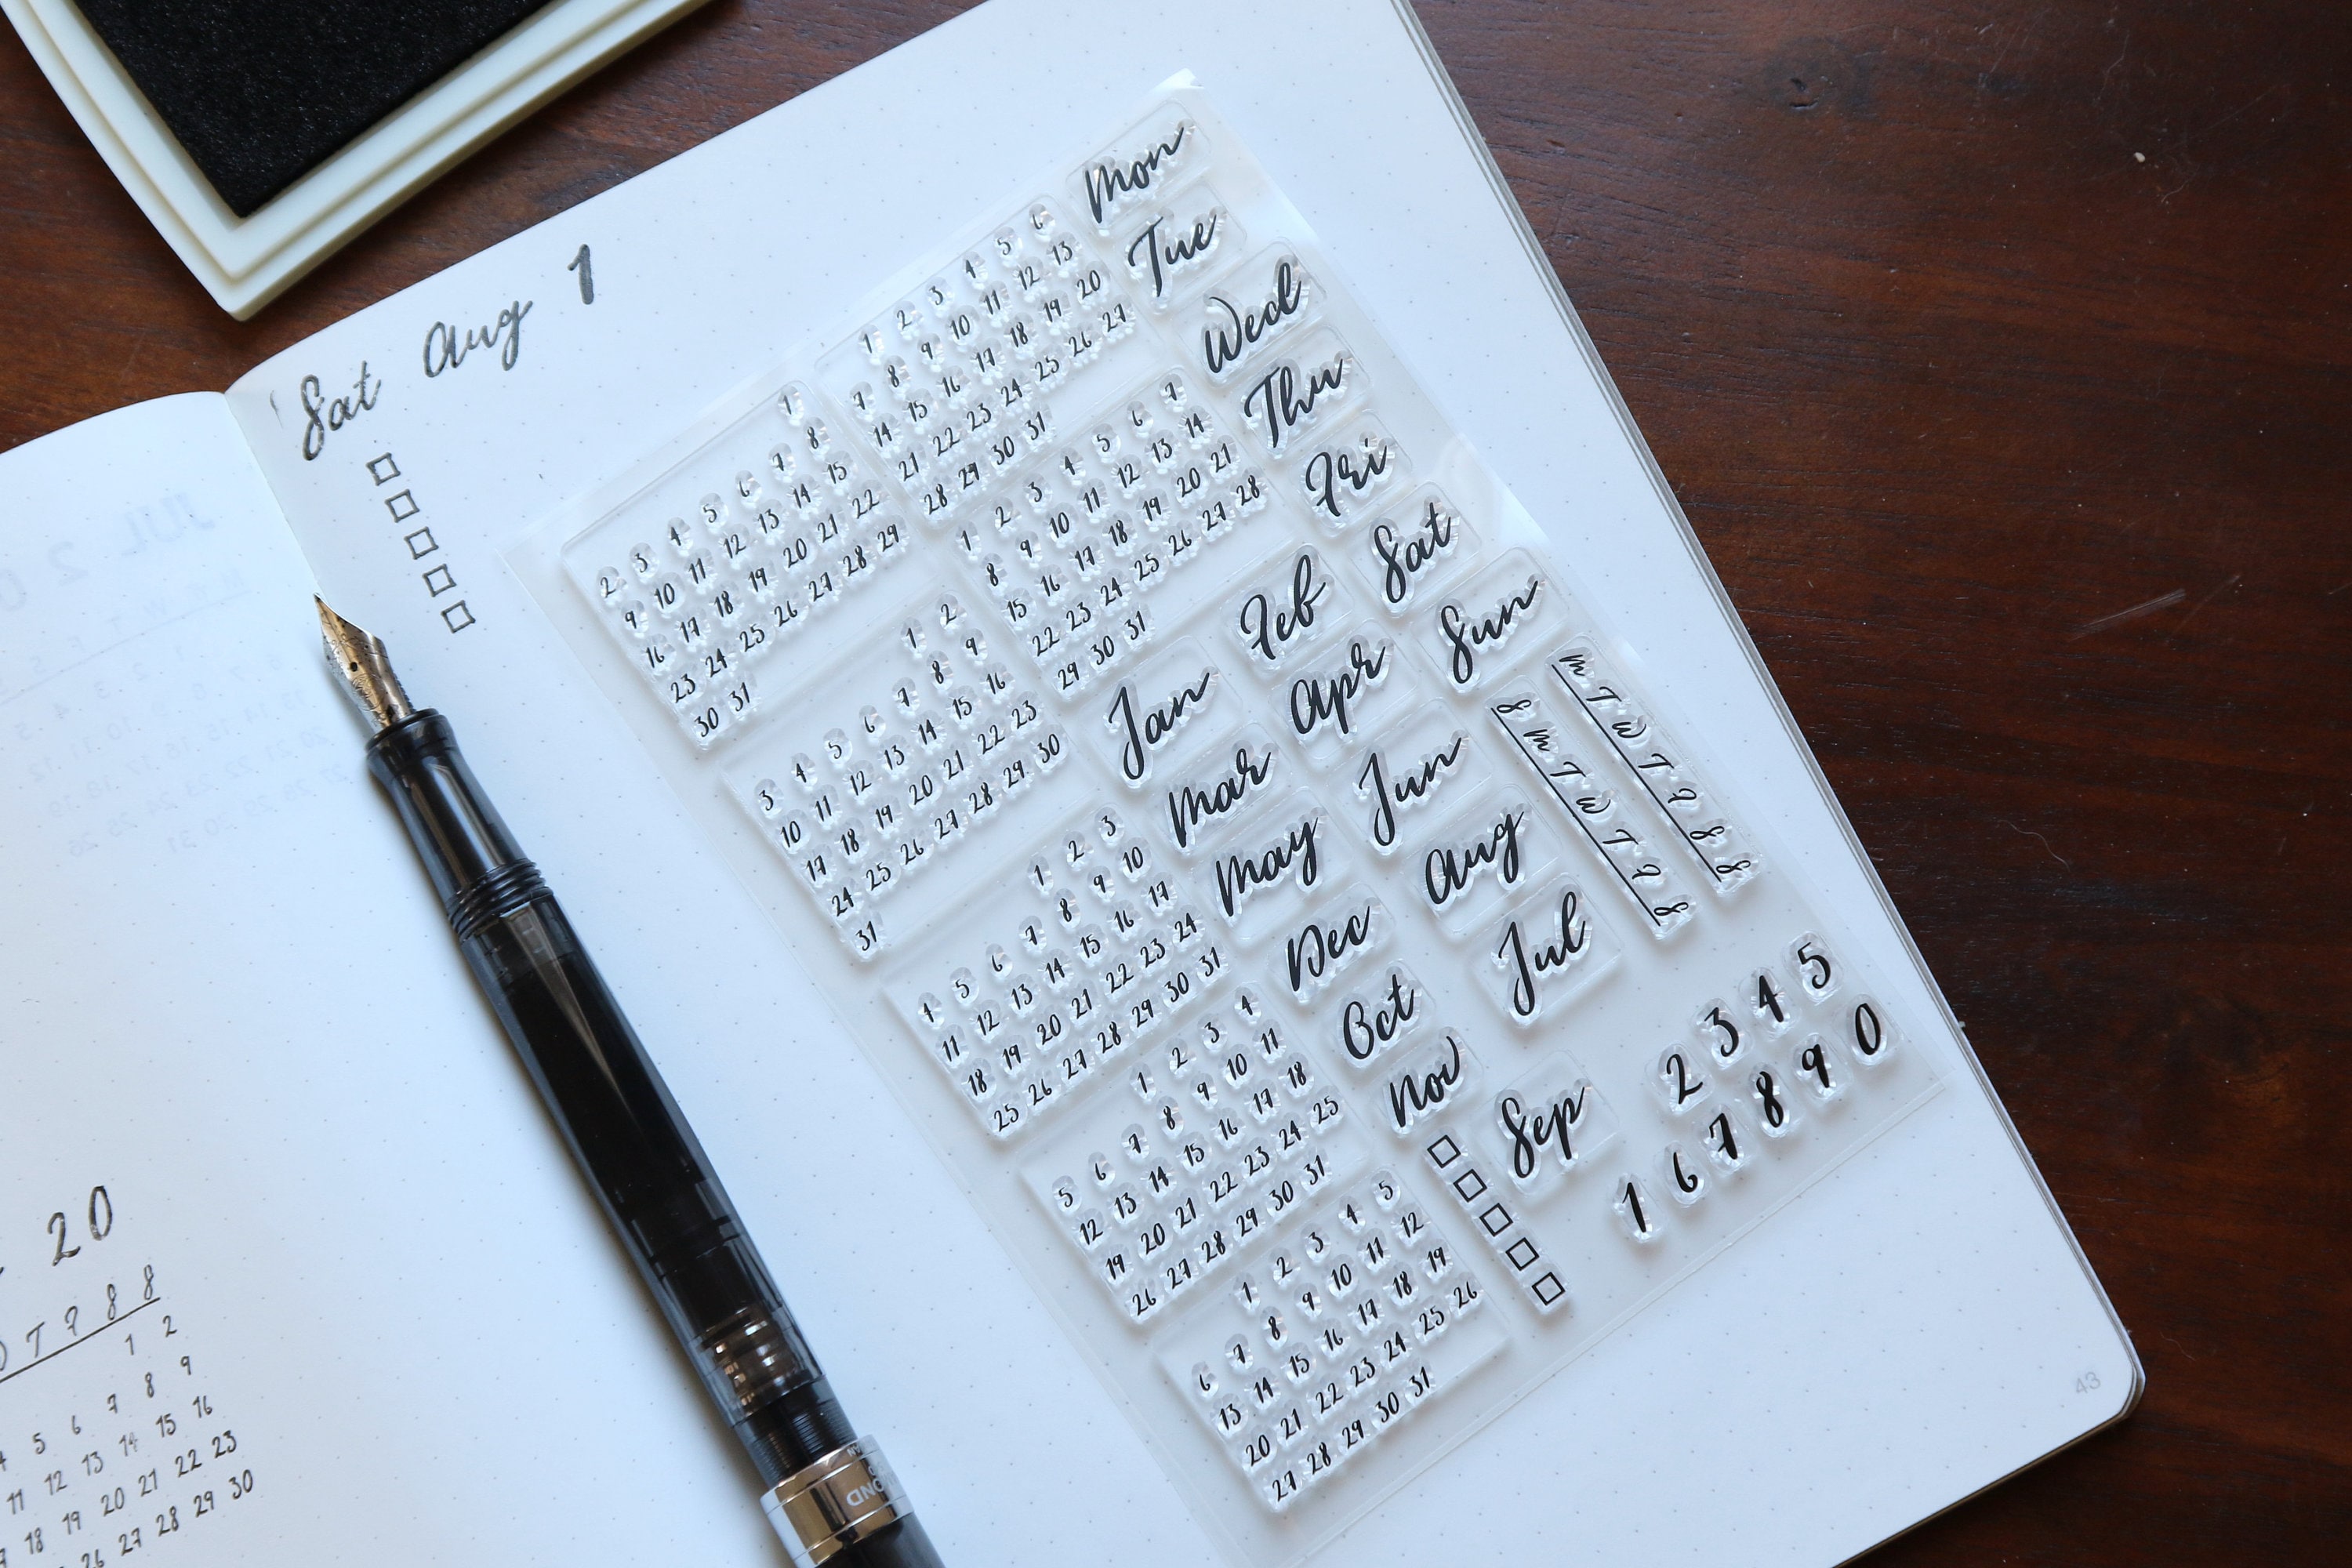 Sat Aug 1
JUL 2
20
T F S S
1 2
6 7 8 9
5 6 7 8 9
12 13 14 15 16
18 19 20 21 22 23
26 27 28 29 30
1
2 3 4 5 6 7 8
9 10 11 12 13 14 15
16 17 18 19 20 21 22
23 24 25 26 27 28 29
30 31
1 2 3 4 5 6
7 8 9 10 11 12 13
14 15 16 17 18 19 20
21 22 23 24 25 26 27
28 29 30 31
1 2 3 4 5 6 7
8 9 10 11 12 13 14
15 16 17 18 19 20 21
22 23 24 25 26 27 28
29 30 31
1 2
3 4 5 6 7 8 9
10 11 12 13 14 15 16
17 18 19 20 21 22 23
24 25 26 27 28 29 30
31
1 2 3
4 5 6 7 8 9 10
11 12 13 14 15 16 17
18 19 20 21 22 23 24
25 26 27 28 29 30 31
1 2 3 4
5 6 7 8 9 10 11
12 13 14 15 16 17 18
19 20 21 22 23 24 25
26 27 28 29 30 31
1 2 3 4 5
6 7 8 9 10 11 12
13 14 15 16 17 18 19
20 21 22 23 24 25 26
27 28 29 30 31
Mon
Tue
Wed
Thu
Fri
Sat
Sun
Jan Feb
Mar Apr
May Jun
Dec Aug
Oct Jul
Nov Sep
M T W T F S S
S M T W T F S
2 3 4 5
1 6 7 8 9 0
43